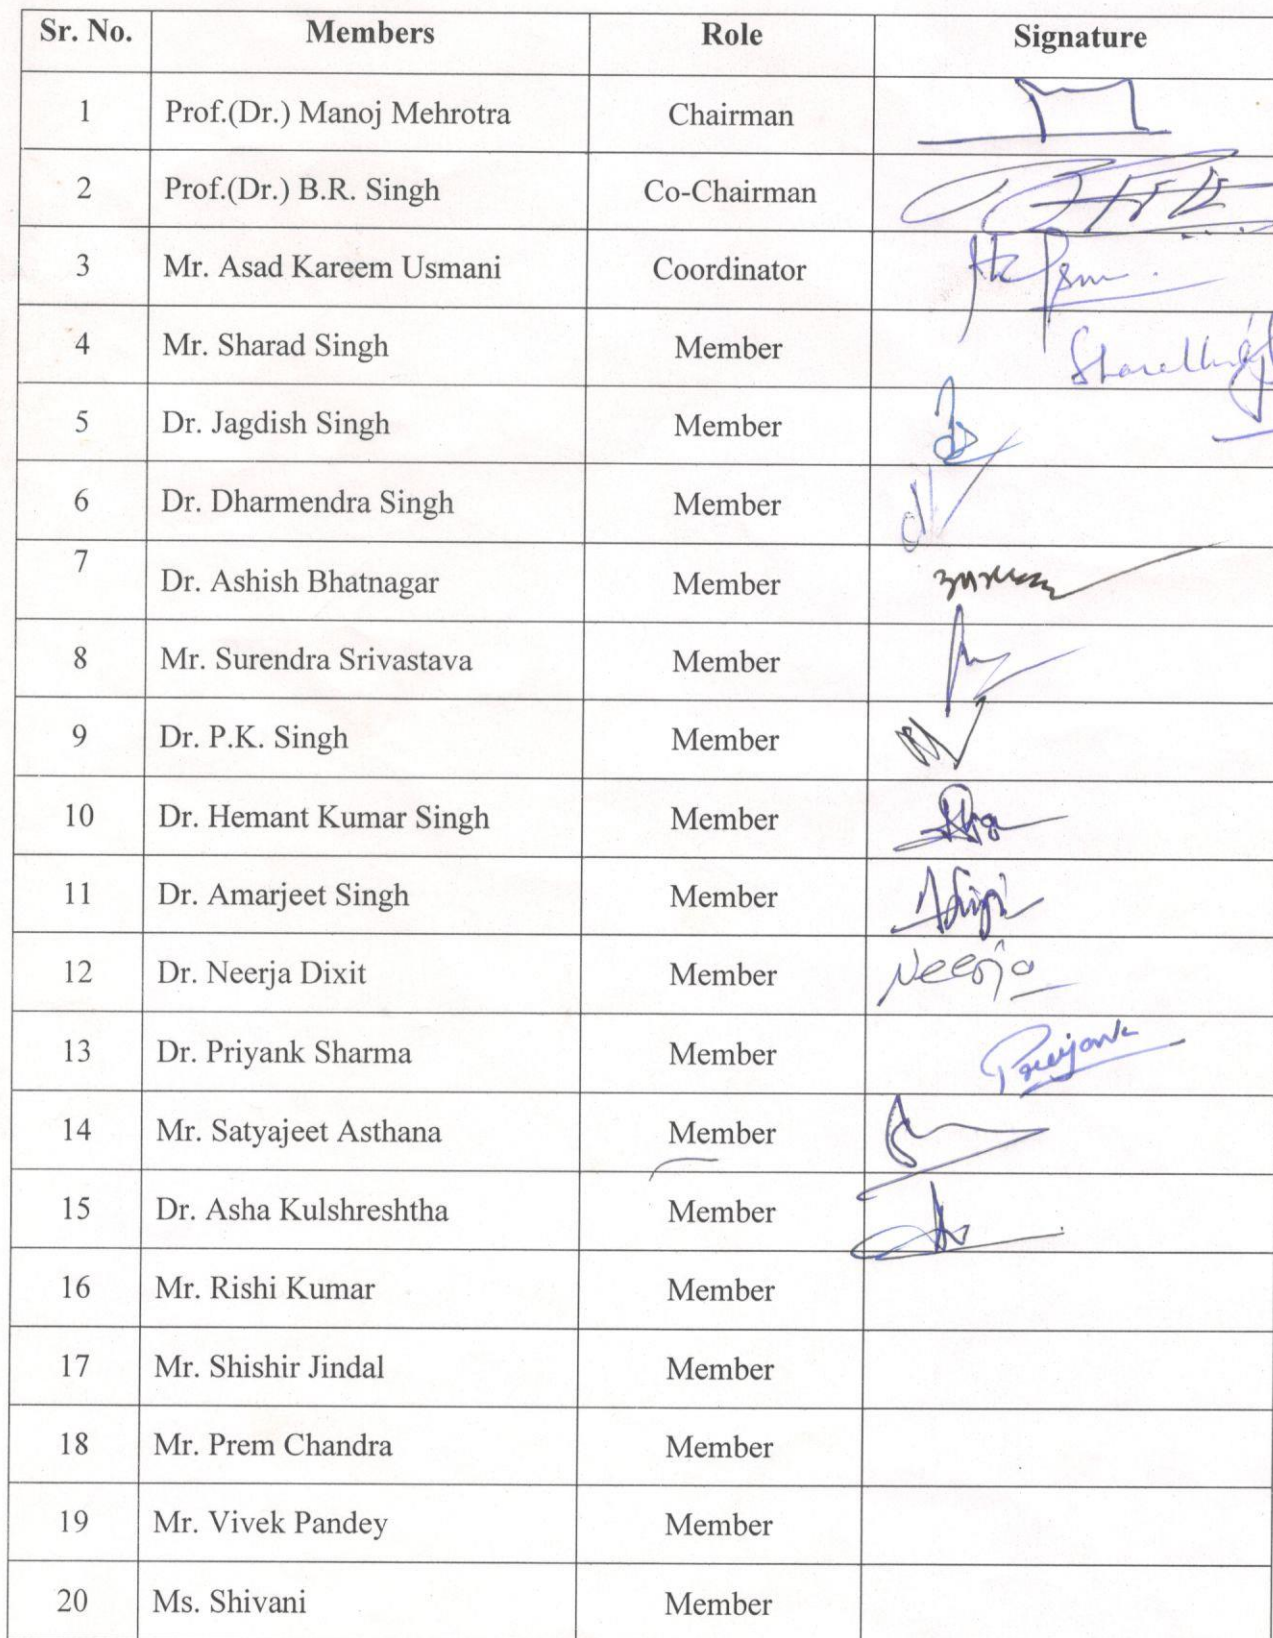 Sr. No. Members Role Signature
1 Prof.(Dr.) Manoj Mehrotra Chairman
2 Prof.(Dr.) B.R. Singh Co-Chairman
3 Mr. Asad Kareem Usmani Coordinator
4 Mr. Sharad Singh Member
5 Dr. Jagdish Singh Member
6 Dr. Dharmendra Singh Member
7 Dr. Ashish Bhatnagar Member
8 Mr. Surendra Srivastava Member
9 Dr. P.K. Singh Member
10 Dr. Hemant Kumar Singh Member
11 Dr. Amarjeet Singh Member
12 Dr. Neerja Dixit Member Neerja
13 Dr. Priyank Sharma Member Priyank
14 Mr. Satyajeet Asthana Member
15 Dr. Asha Kulshreshtha Member
16 Mr. Rishi Kumar Member
17 Mr. Shishir Jindal Member
18 Mr. Prem Chandra Member
19 Mr. Vivek Pandey Member
20 Ms. Shivani Member